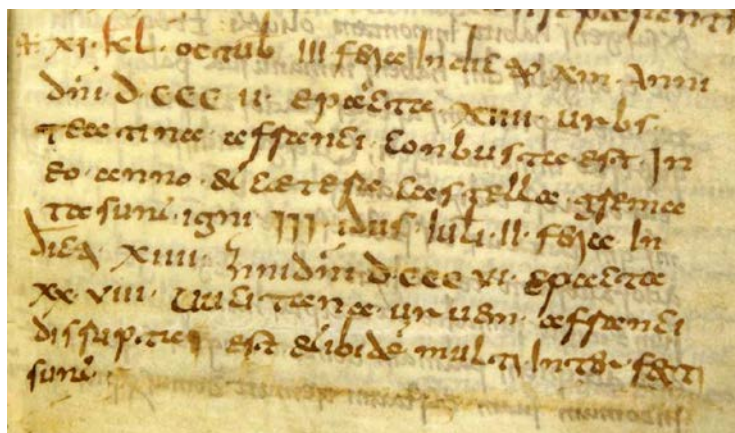 + XI · kL · octub III feria Indic XIII · Anni
dni · Dccc II · epacta XIIII · urbs ·
teatina a francis conbusta est · In
eo anno & cetera castella crema
ta sunt · igni III idus Iuli · II · feria In
dic XIIII · Anni dni Dccc VI · epacta
XX · VIII · urbem · a franci
disrupta est & ibidem multi Interfecti
sunt ·